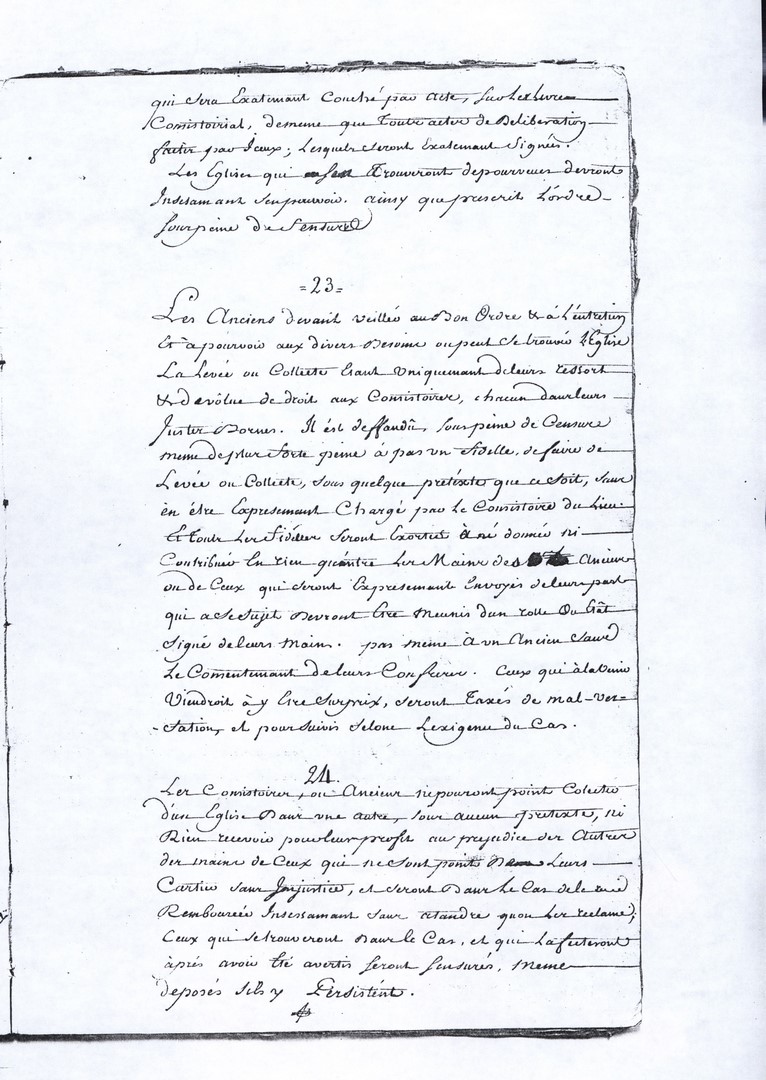 qui sera Exatemant Couché par acte, sur Les Livre
Consistoirial, de meme que Toute actes de Deliberation
faitte par Iceux; Lesquels seront Exatemant Signés.
Les Eglises qui se Trouveront depourveues devront
Insesamant sen pourvoir. ainsy que prescrit L'ordre
sous peine de Censure
=23=
Les Anciens devant veiller au Bon Ordre & à L'entretien
Et à pourvoir aux divers Besoins ou peut se trouver L'Eglise
La Levée ou Collecte Etant Uniquemant de leurs ressort
& dévolue de droit aux Consistoires, chacun dans leurs
Justes Bornes. Il ést deffandu, sous peine de Censure
meme de plus forte peine à pas un fidelle, de faire de
Levée ou Collecte, sous quelque pretexte que ce soit, sans
en étre Expresemant Chargé par le Consistoire du Lieu.
Et Toute Les fidelles seront Exortés à né donner ni
Contribuer En rien qu'éntre Les Mains des Anciens
ou de Ceux qui seront Expresemant Envoyés de leur part
qui a Ce Sujet Devront Etre Meunis d'un rolle Ou Etât
Signé de leurs mains. pas meme à un Ancien sans
Le Consentemant de leurs Confrères. Ceux qui à lavenir
Viendroit à y Etre Surprix, seront Taxés de mal-ver=
-sation, et poursuivis selon L'exigence du Cas.
24.
Les Consistoires, ou Anciens ne pouront point Colecter
d'un Eglise Dans une autre, sous aucun pretexte, ni
Rien recevoir pour leur profit au prejudice des Autres
des mains de Ceux qui ne sont point Leurs
Cartier sans Injustice, et seront Dans Le Cas de le
Rembourcer Insessamant sans atandre quon Les reclame;
Ceux qui se trouveront Dans le Cas, et qui La feteront
àpiés avoir Eté avertis seront sensurés, Meme
deposés sils y Persistent.